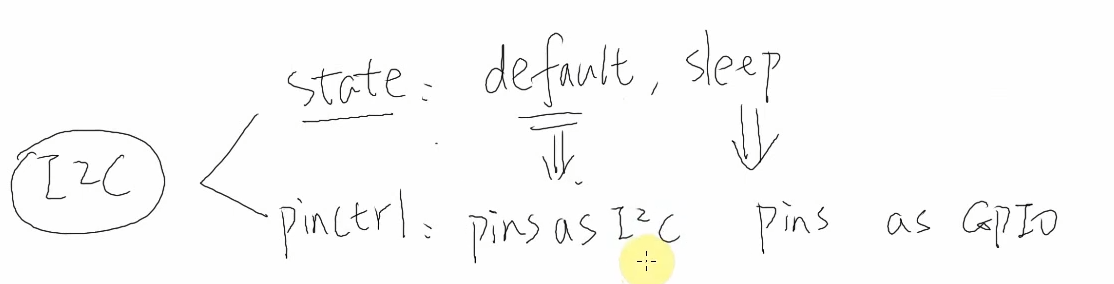 state: default, sleep
I2C
pinctrl: pins as I²C pins as GPIO